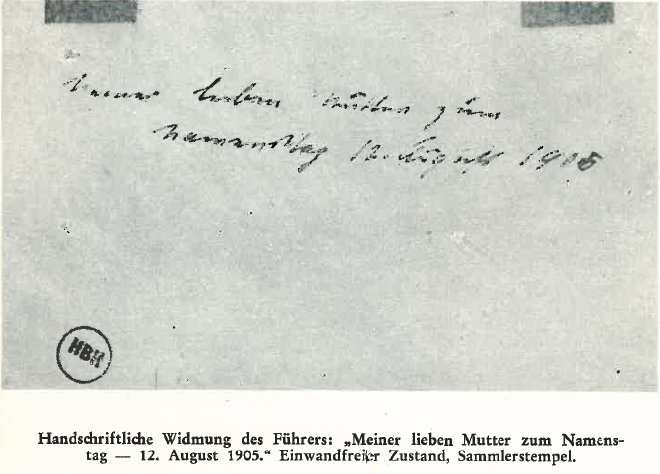 Meiner lieben Mutter zum
Namenstag 12. August 1905
HBH
Handschriftliche Widmung des Führers: „Meiner lieben Mutter zum Namens-
tag — 12. August 1905.“ Einwandfreier Zustand, Sammlerstempel.